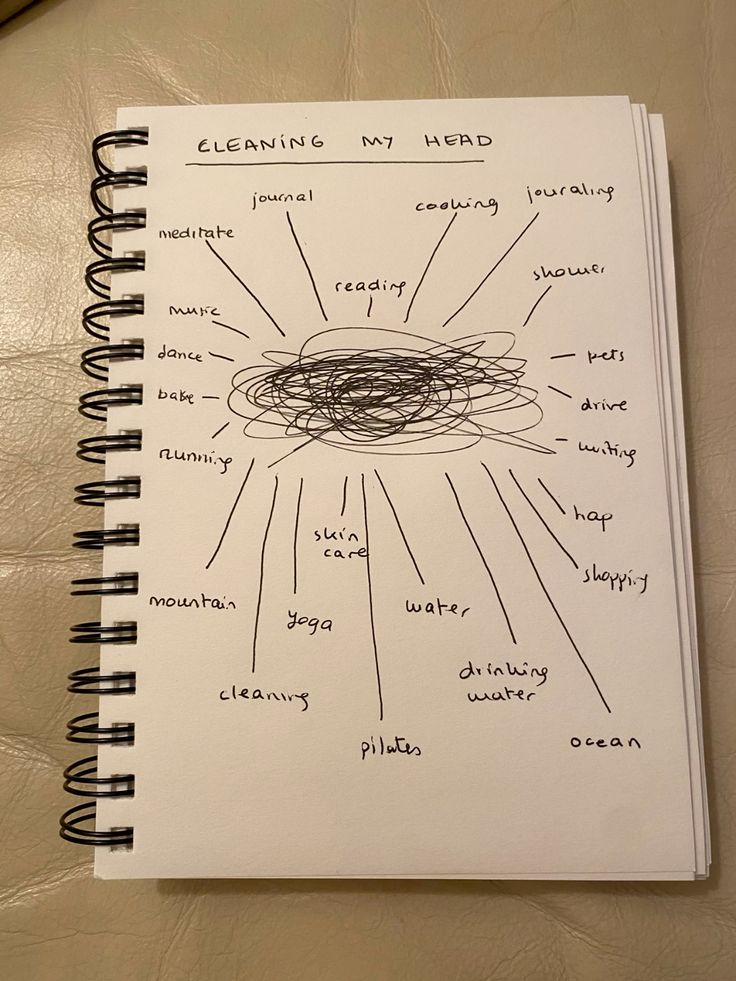 CLEANING MY HEAD
journal
cooking
journaling
meditate
reading
shower
music
dance
pets
bake
drive
running
writing
hap
skin
care
shopping
mountain
yoga
water
cleaning
drinking
water
pilates
ocean